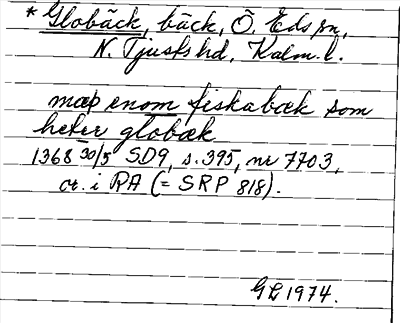 * Globäck, bäck, Ö. Eds sn,
N. Tjusts hd, Kalm. l.
mæþ enom fiskabæk som
heter globæk
1368 30/5 SD9, s. 395, nr 7703,
or. i RA (= SRP 818).
GL 1974.